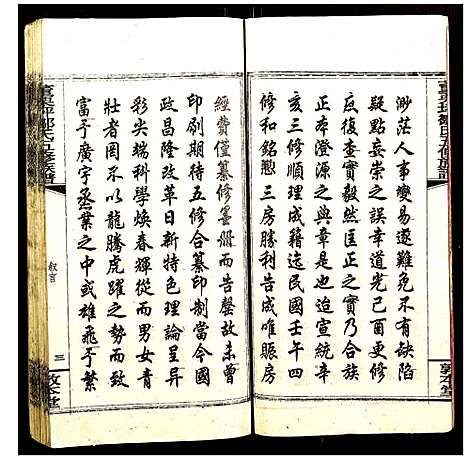 渺茫人事變易遂難免不有缺陷
疑點妄崇之誤幸道光己酉更修
底復委實毅然匡正之實乃合族
正本澄源之典章是也迫宣統辛
亥三修順理成籍迄民國壬午四
修和銘懃三房勝利告成唯賬房
經費僅纂修墨册而告罄故未曾
印刷期待五修合纂印制當今國
政昌隆改革日新特色理論呈异
彩尖端科學煥春輝從而男女青
壯者罔不以龍騰虎躍之勢而致
富于廣宇烝業之中或雄飛于繁
叙言
三
敦本堂